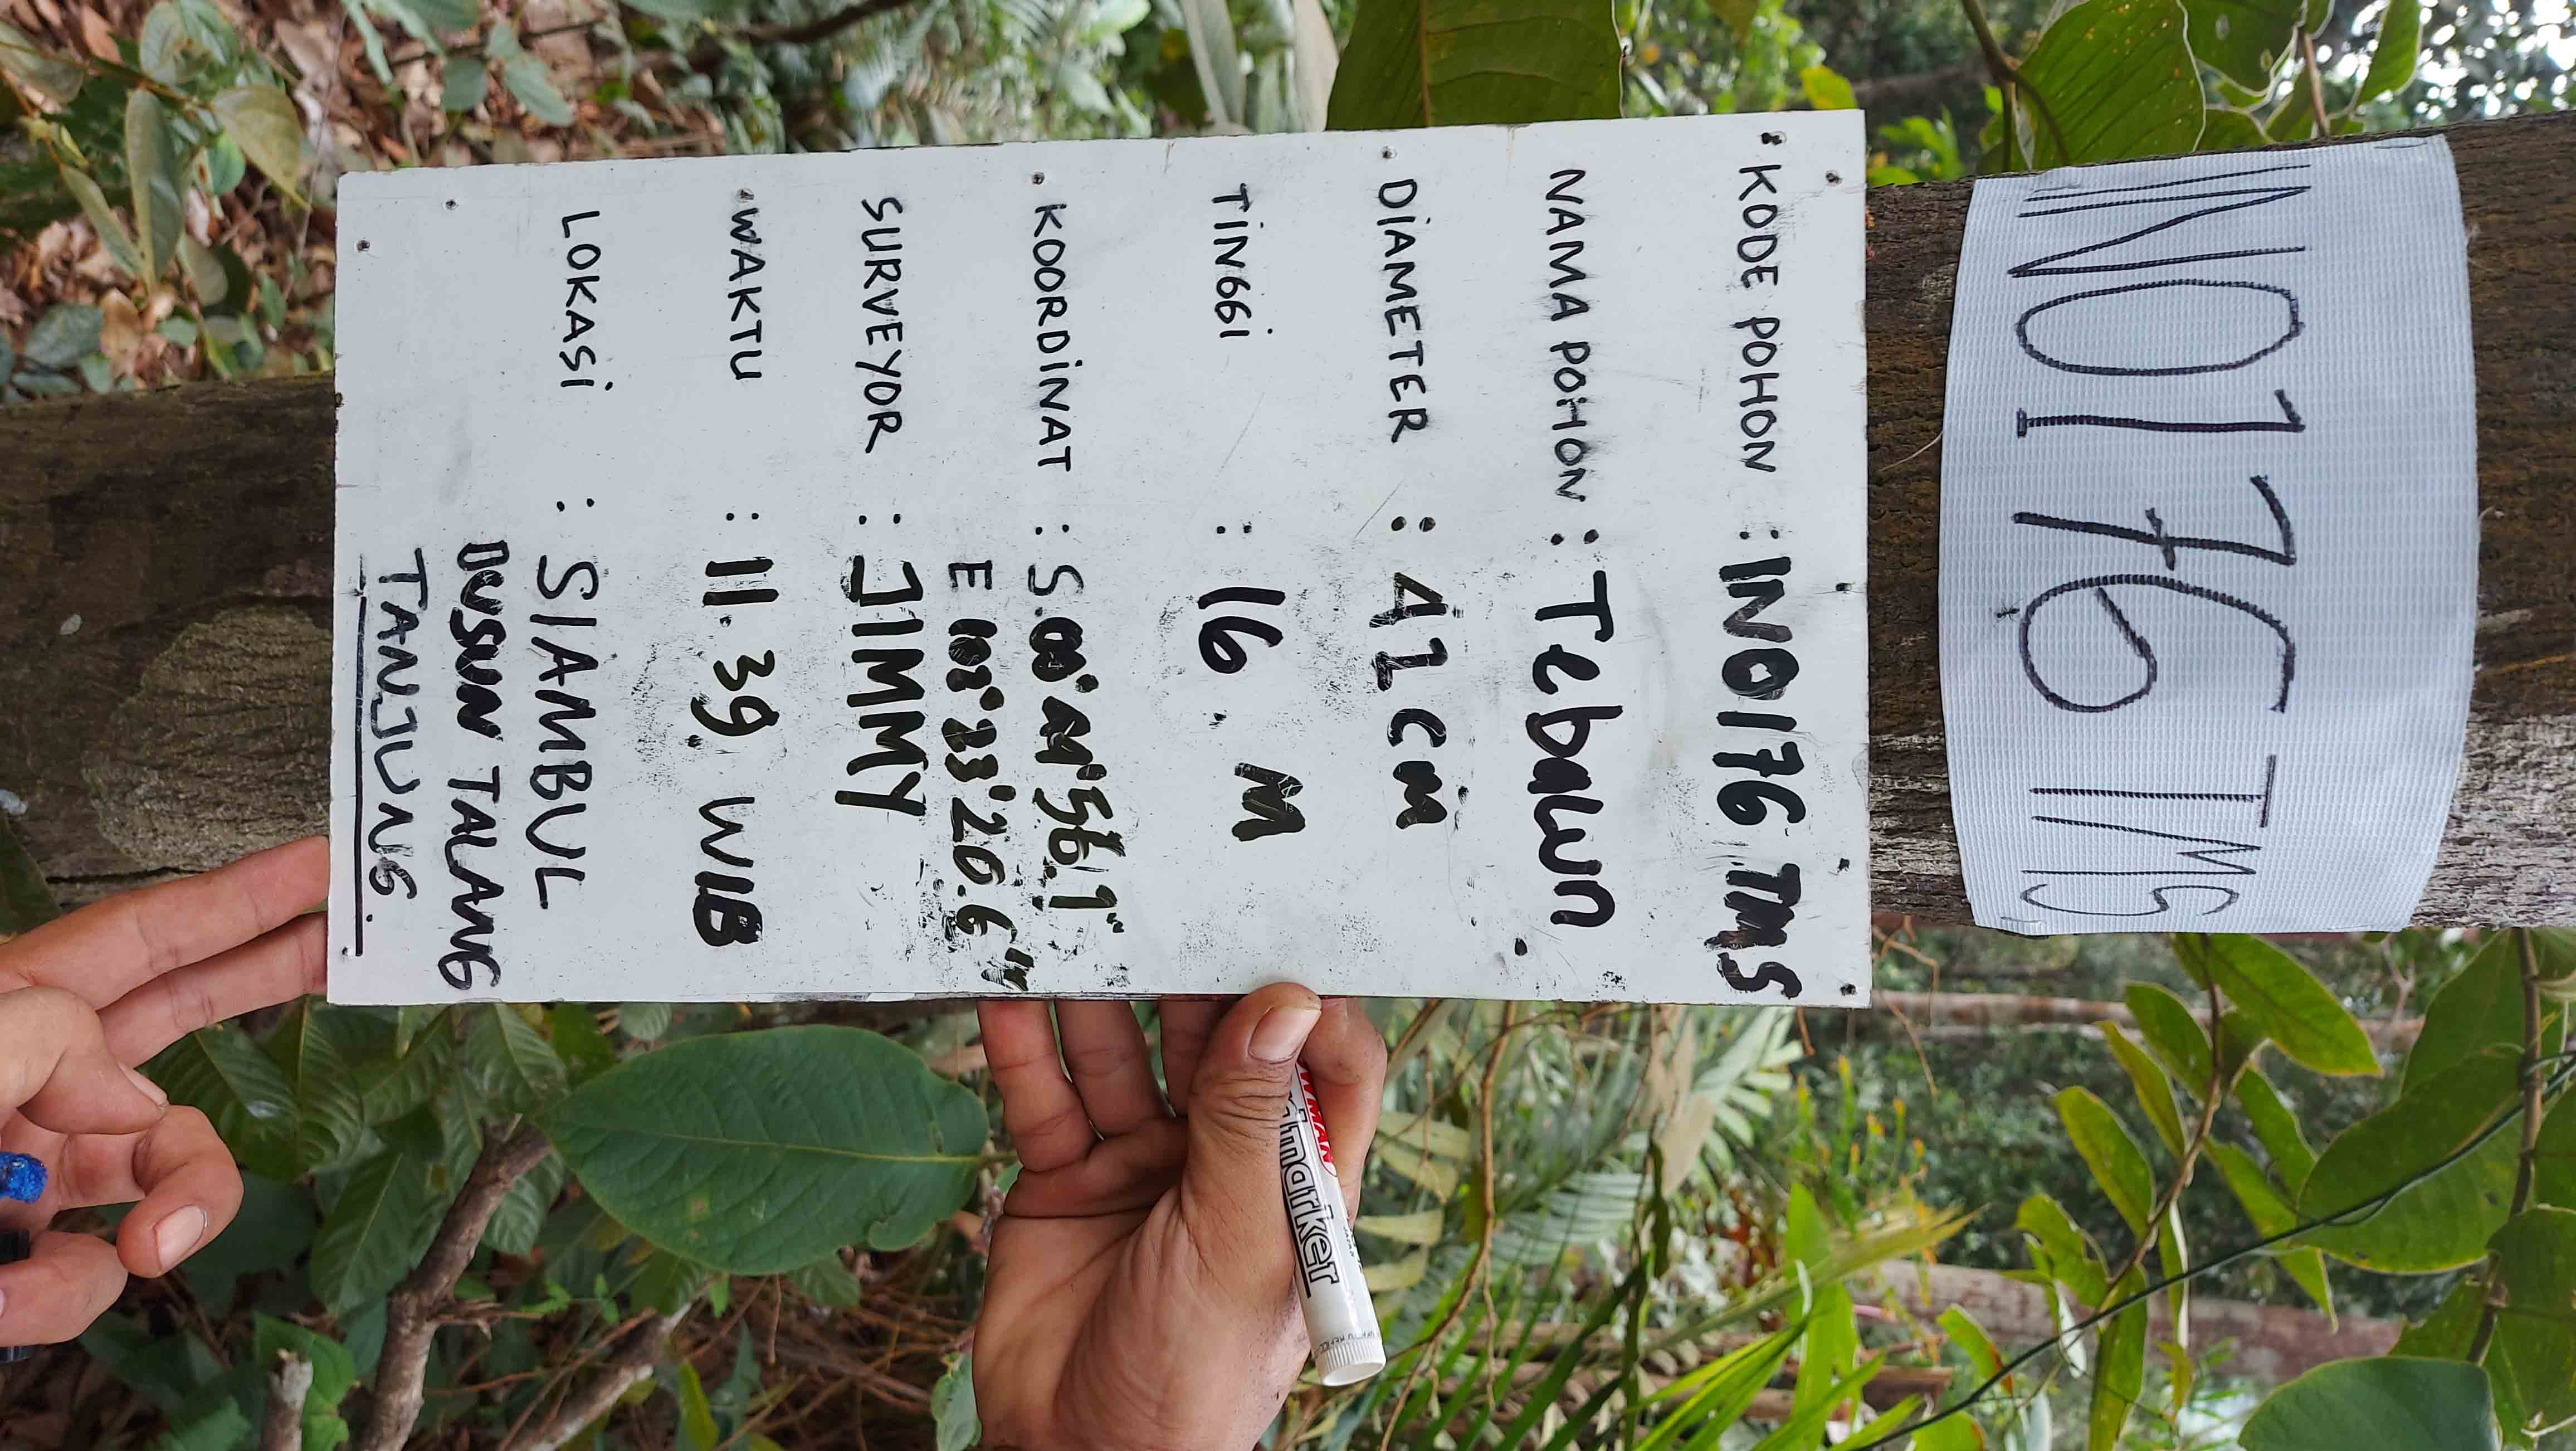 IN0176 TMS
KODE POHON : IN0176 TMS
NAMA POHON : Tebaun
DIAMETER : 41 cm
TINGGI : 16. M
KOORDINAT : S.00° 56.1"
E 102° 33' 26.6"
SURVEYOR : JIMMY
WAKTU : 11.39 WIB
LOKASI : SIAMBUL
DUSUN TALANG
TANJUNG.
marker